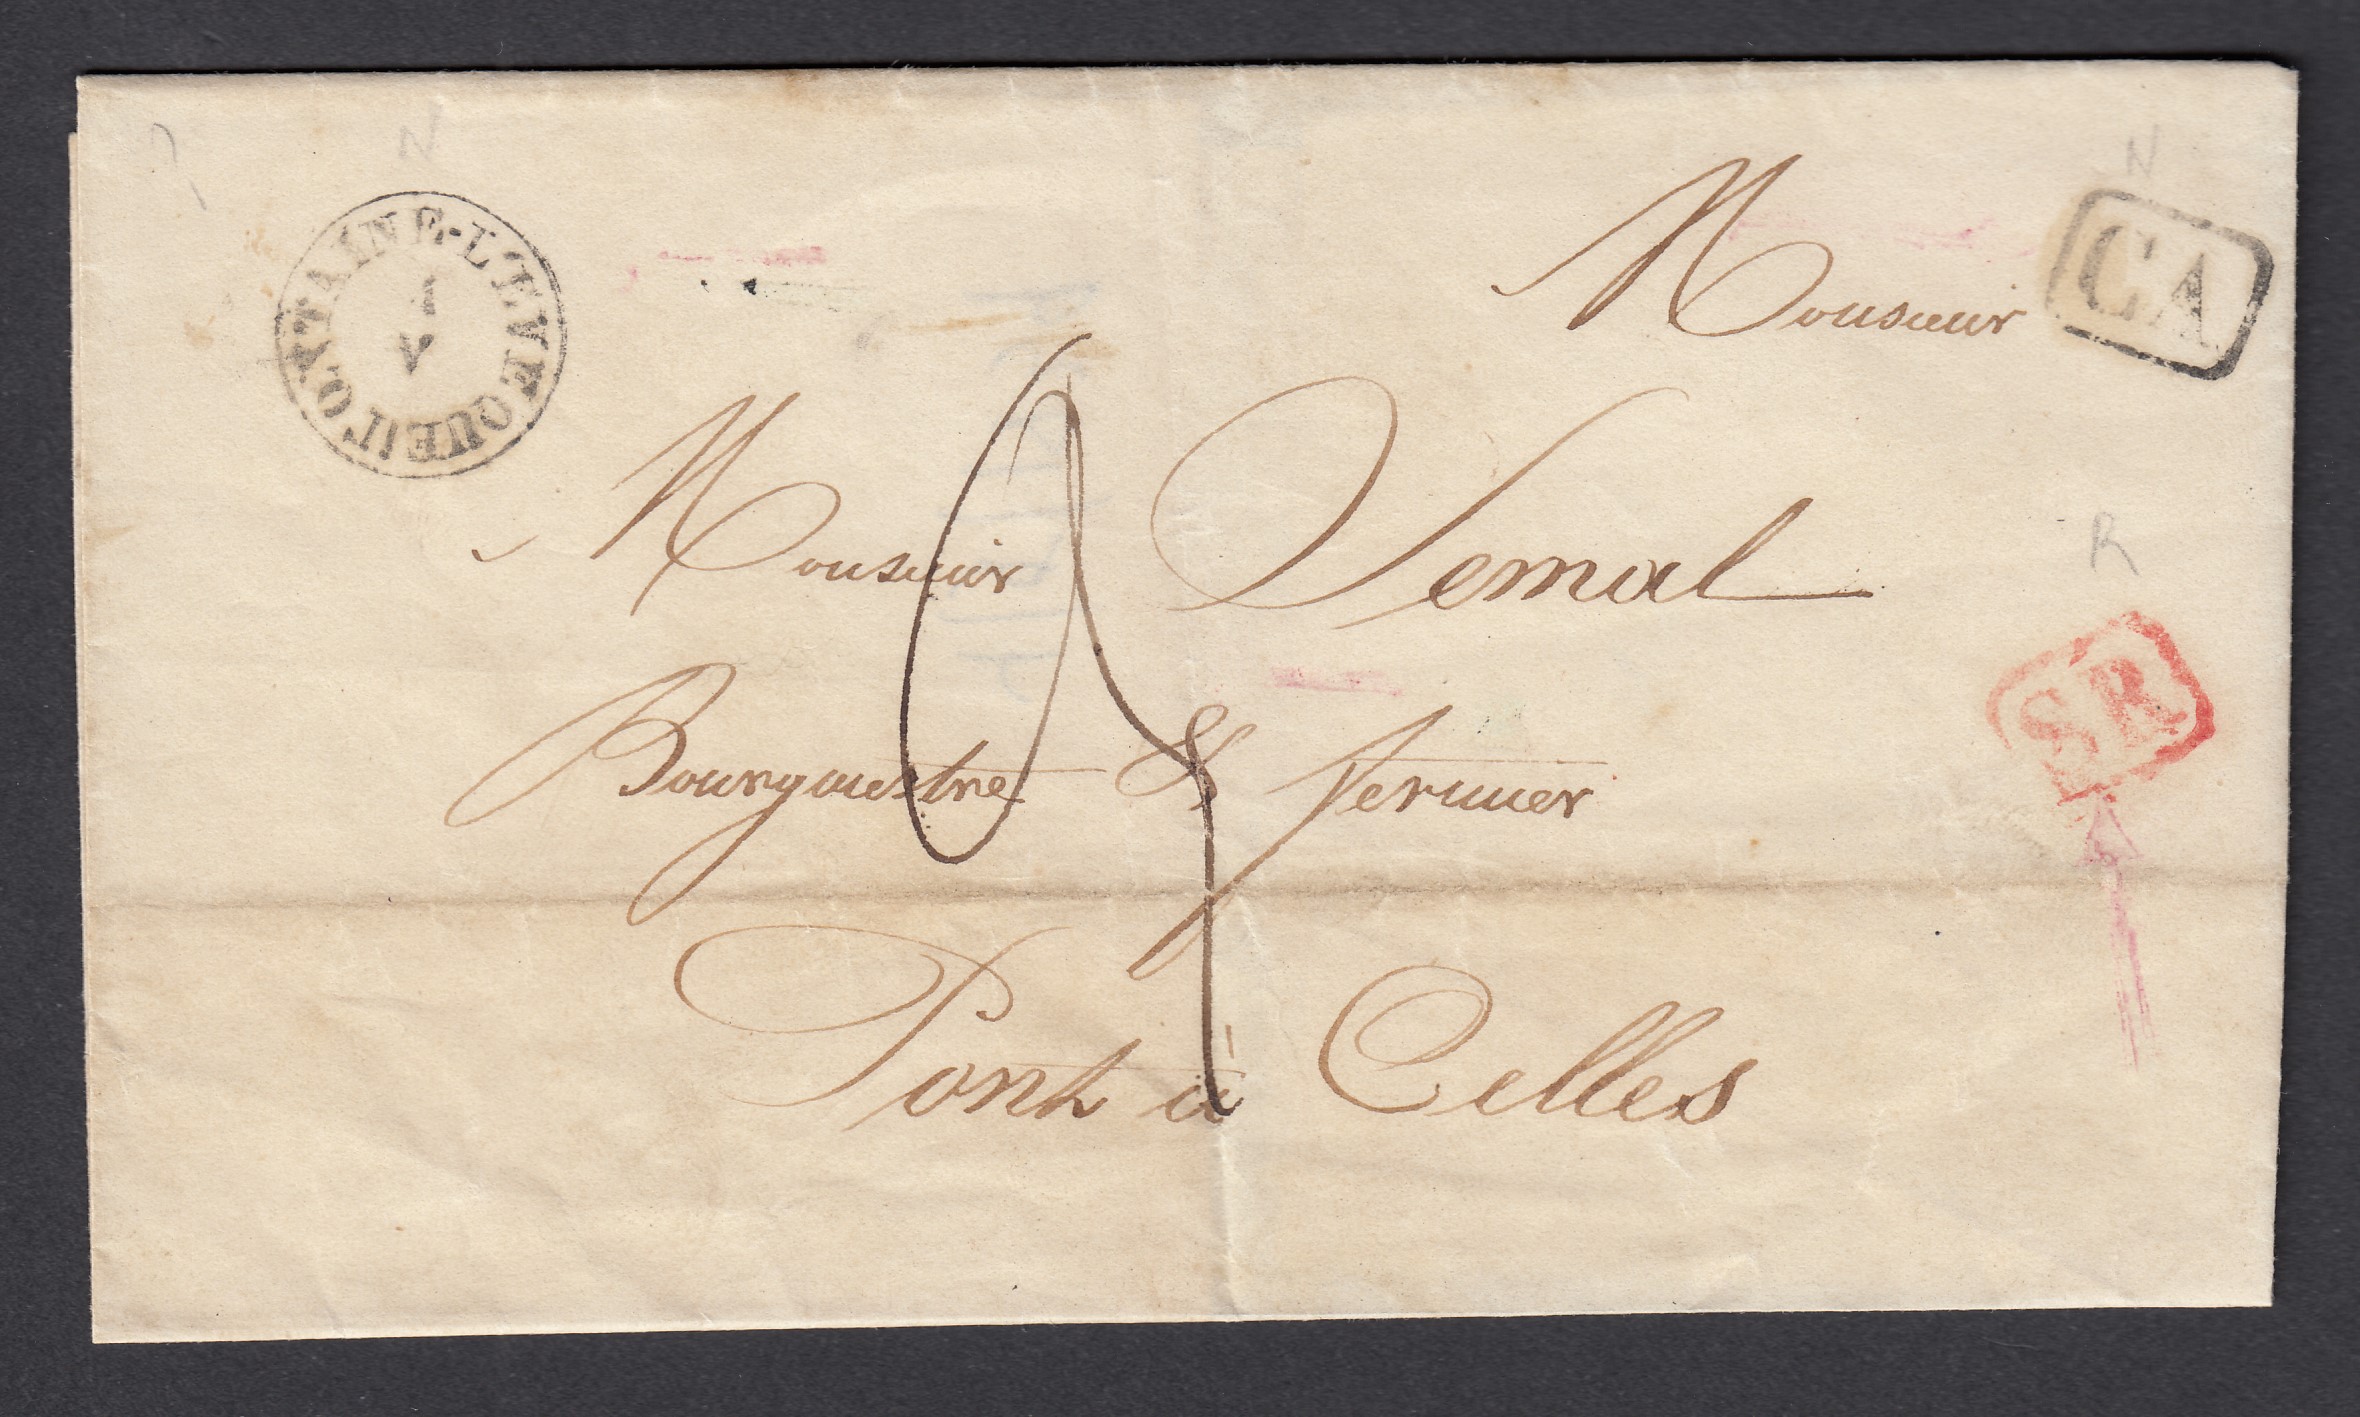 FONTAINE-L'EVEQUE
CA
Monsieur
Monsieur
SR
Bourgmestre & fermier
Pont à Celles
N
N
R